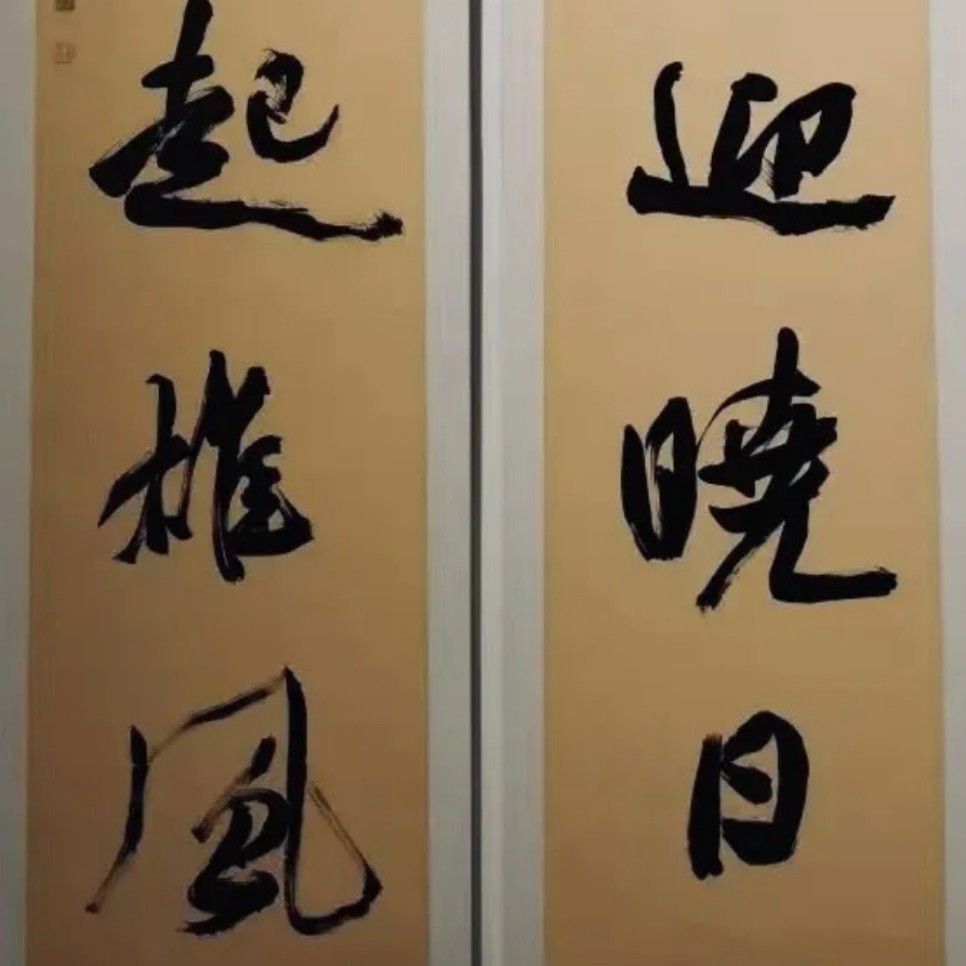 迎曉日
起雄風